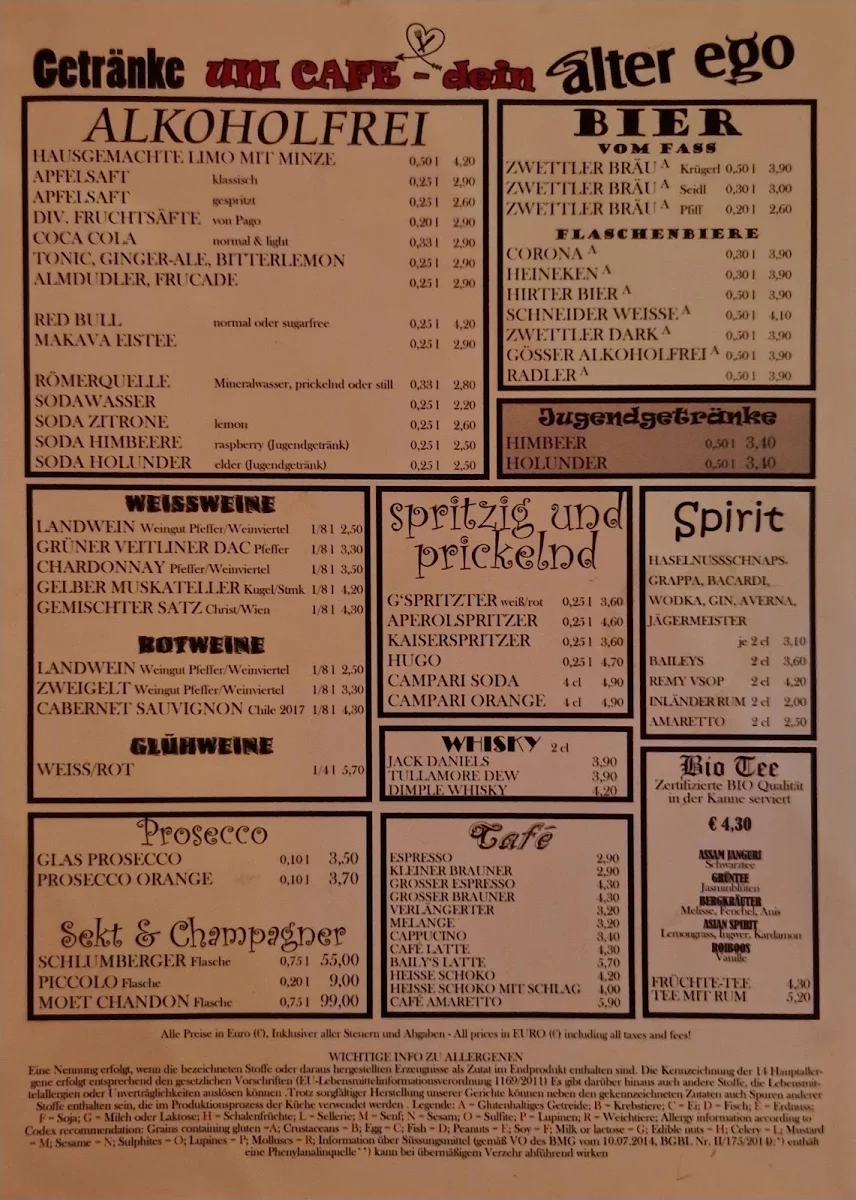 Getränke UNI CAFE - dein alter ego
ALKOHOLFREI
HAUSGEMACHTE LIMO MIT MINZE 0,50 l 4,20
APFELSAFT klassisch 0,25 l 2,90
APFELSAFT gespritzt 0,25 l 2,60
DIV. FRUCHTSÄFTE von Pago 0,20 l 2,90
COCA COLA normal & light 0,33 l 2,90
TONIC, GINGER-ALE, BITTERLEMON 0,25 l 2,90
ALMDUDLER, FRUCADE 0,25 l 2,90
RED BULL normal oder sugarfree 0,25 l 4,20
MAKAVA EISTEE 0,25 l 2,90
RÖMERQUELLE Mineralwasser, prickelnd oder still 0,33 l 2,80
SODAWASSER 0,25 l 2,20
SODA ZITRONE lemon 0,25 l 2,60
SODA HIMBEERE raspberry (Jugendgetränk) 0,25 l 2,50
SODA HOLUNDER elder (Jugendgetränk) 0,25 l 2,50
BIER
VOM FASS
ZWETTLER BRÄU A Krügerl 0,50 l 3,90
ZWETTLER BRÄU A Seidl 0,30 l 3,00
ZWETTLER BRÄU A Pfiff 0,20 l 2,60
FLASCHENBIERE
CORONA A 0,30 l 3,90
HEINEKEN A 0,30 l 3,90
HIRTER BIER A 0,50 l 3,90
SCHNEIDER WEISSE A 0,50 l 4,10
ZWETTLER DARK A 0,50 l 3,90
GÖSSER ALKOHOLFREI A 0,50 l 3,90
RADLER A 0,50 l 3,90
Jugendgetränke
HIMBEER 0,50 l 3,40
HOLUNDER 0,50 l 3,40
WEISSWEINE
LANDWEIN Weingut Pfeffer/Weinviertel 1/8 l 2,50
GRÜNER VEITLINER DAC Pfeffer 1/8 l 3,30
CHARDONNAY Pfeffer/Weinviertel 1/8 l 3,50
GELBER MUSKATELLER Kugel/Stmk 1/8 l 4,20
GEMISCHTER SATZ Christ/Wien 1/8 l 4,30
ROTWEINE
LANDWEIN Weingut Pfeffer/Weinviertel 1/8 l 2,50
ZWEIGELT Weingut Pfeffer/Weinviertel 1/8 l 3,30
CABERNET SAUVIGNON Chile 2017 1/8 l 4,30
GLÜHWEINE
WEISS/ROT 1/4 l 5,70
spritzig und
prickelnd
G'SPRITZTER weiß/rot 0,25 l 3,60
APEROLSPRITZER 0,25 l 4,60
KAISERSPRITZER 0,25 l 3,60
HUGO 0,25 l 4,70
CAMPARI SODA 4 cl 4,90
CAMPARI ORANGE 4 cl 4,90
WHISKY 2 cl
JACK DANIELS 3,90
TULLAMORE DEW 3,90
DIMPLE WHISKY 4,20
Spirit
HASELNUSSSCHNAPS,
GRAPPA, BACARDI,
WODKA, GIN, AVERNA,
JÄGERMEISTER
je 2 cl 3,10
BAILEYS 2 cl 3,60
REMY VSOP 2 cl 4,20
INLÄNDER RUM 2 cl 2,00
AMARETTO 2 cl 2,50
Prosecco
GLAS PROSECCO 0,10 l 3,50
PROSECCO ORANGE 0,10 l 3,70
Sekt & Champagner
SCHLUMBERGER Flasche 0,75 l 55,00
PICCOLO Flasche 0,20 l 9,00
MOET CHANDON Flasche 0,75 l 99,00
Café
ESPRESSO 2,90
KLEINER BRAUNER 2,90
GROSSER ESPRESSO 4,30
GROSSER BRAUNER 4,30
VERLÄNGERTER 3,20
MELANGE 3,20
CAPPUCINO 3,40
CAFÉ LATTE 4,30
BAILY'S LATTE 5,70
HEISSE SCHOKO 4,20
HEISSE SCHOKO MIT SCHLAG 4,00
CAFÉ AMARETTO 5,90
Bio Tee
Zertifizierte BIO Qualität
in der Kanne serviert
€ 4,30
ASSAM JANGURI
Schwarztee
GRÜNTEE
Jasminblüten
BERGKRÄUTER
Melisse, Fenchel, Anis
ASIAN SPIRIT
Lemongrass, Ingwer, Kardamon
ROIBOOS
Vanille
FRÜCHTE-TEE 4,30
TEE MIT RUM 5,20
Alle Preise in Euro (€), Inklusiver aller Steuern und Abgaben - All prices in EURO (€) including all taxes and fees!
WICHTIGE INFO ZU ALLERGENEN
Eine Nennung erfolgt, wenn die bezeichneten Stoffe oder daraus hergestellten Erzeugnisse als Zutat im Endprodukt enthalten sind. Die Kennzeichnung der 14 Hauptaller-
gene erfolgt entsprechend den gesetzlichen Vorschriften (EU-Lebensmittelinformationsverordnung 1169/2011) Es gibt darüber hinaus auch andere Stoffe, die Lebensmit-
telallergien oder Unverträglichkeiten auslösen können .Trotz sorgfältiger Herstellung unserer Gerichte können neben den gekennzeichneten Zutaten auch Spuren anderer
Stoffe enthalten sein, die im Produktionsprozess der Küche verwendet werden . Legende: A = Glutenhaltiges Getreide; B = Krebstiere; C = Ei; D = Fisch; E = Erdnuss;
F = Soja; G = Milch oder Laktose; H = Schalenfrüchte; L = Sellerie; M = Senf; N = Sesam; O = Sulfite; P = Lupinen; R = Weichtiere; Allergy information according to
Codex recommendation: Grains containing gluten =A; Crustaceans = B; Egg = C; Fish = D; Peanuts = E; Soy = F; Milk or lactose = G; Edible nuts = H; Celery = L; Mustard
= M; Sesame = N; Sulphites = O; Lupines = P; Molluscs = R; Information über Süssungsmittel (gemäß VO des BMG vom 10.07.2014, BGBL. Nr. II/175/2014): *) enthält
eine Phenylanalinquelle **) kann bei übermäßigem Verzehr abführend wirken